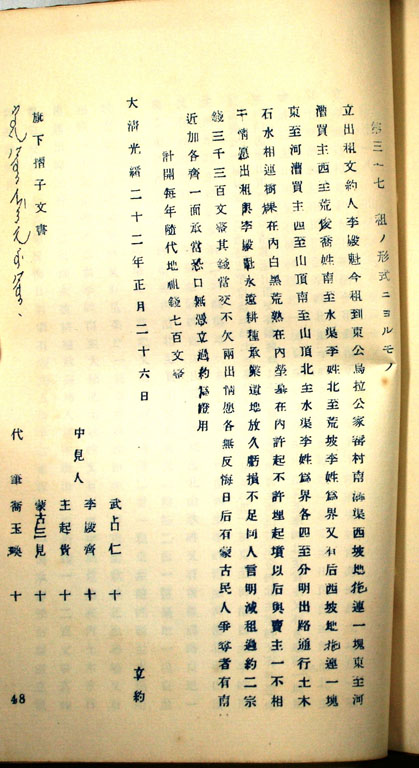 第三十七 租ノ形式ニヨルモノ
立出租文約人李殿魁今租到東公烏拉公家寄村南溝渠西坡地拖連一塊東至河
漕買主西至荒後喬姓南至水渠李姓北至荒坡李姓為界又有后西坡地拖連一塊
東至河漕買主四至山頂南至山頂北至水渠李姓為界各四至分明出路通行土木
石水相連樹株在內白黑荒熟在內塋墓在內許起不許埋起墳以后與賣主一不相
干情愿出租與李殿魁永遠耕種承業道地放久虧損不足同人言明減租過約二宗
錢三千三百文帝其錢當交不欠兩出情愿各無反悔日后有蒙古民人爭奪者有南
近加各齊一面承當恐口無憑立過約為證用
計開每年隨代地租錢七百文帝
大清光緒二十二年正月二十六日 立約
武占仁 十
中見人 李殿齊 十
主起貴 十
蒙古三見 十
代筆喬玉瑛 十
旗下摺子文書
48